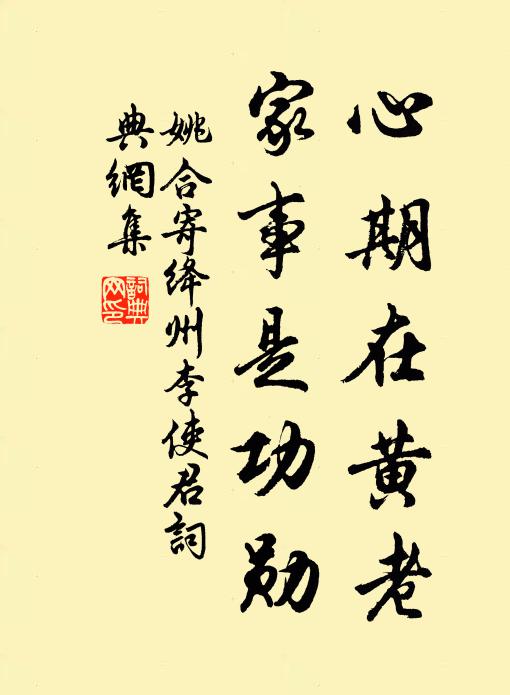 心期在黄老
家事是功勋
姚合寄绛州李使君詞
典網集
詞典网印